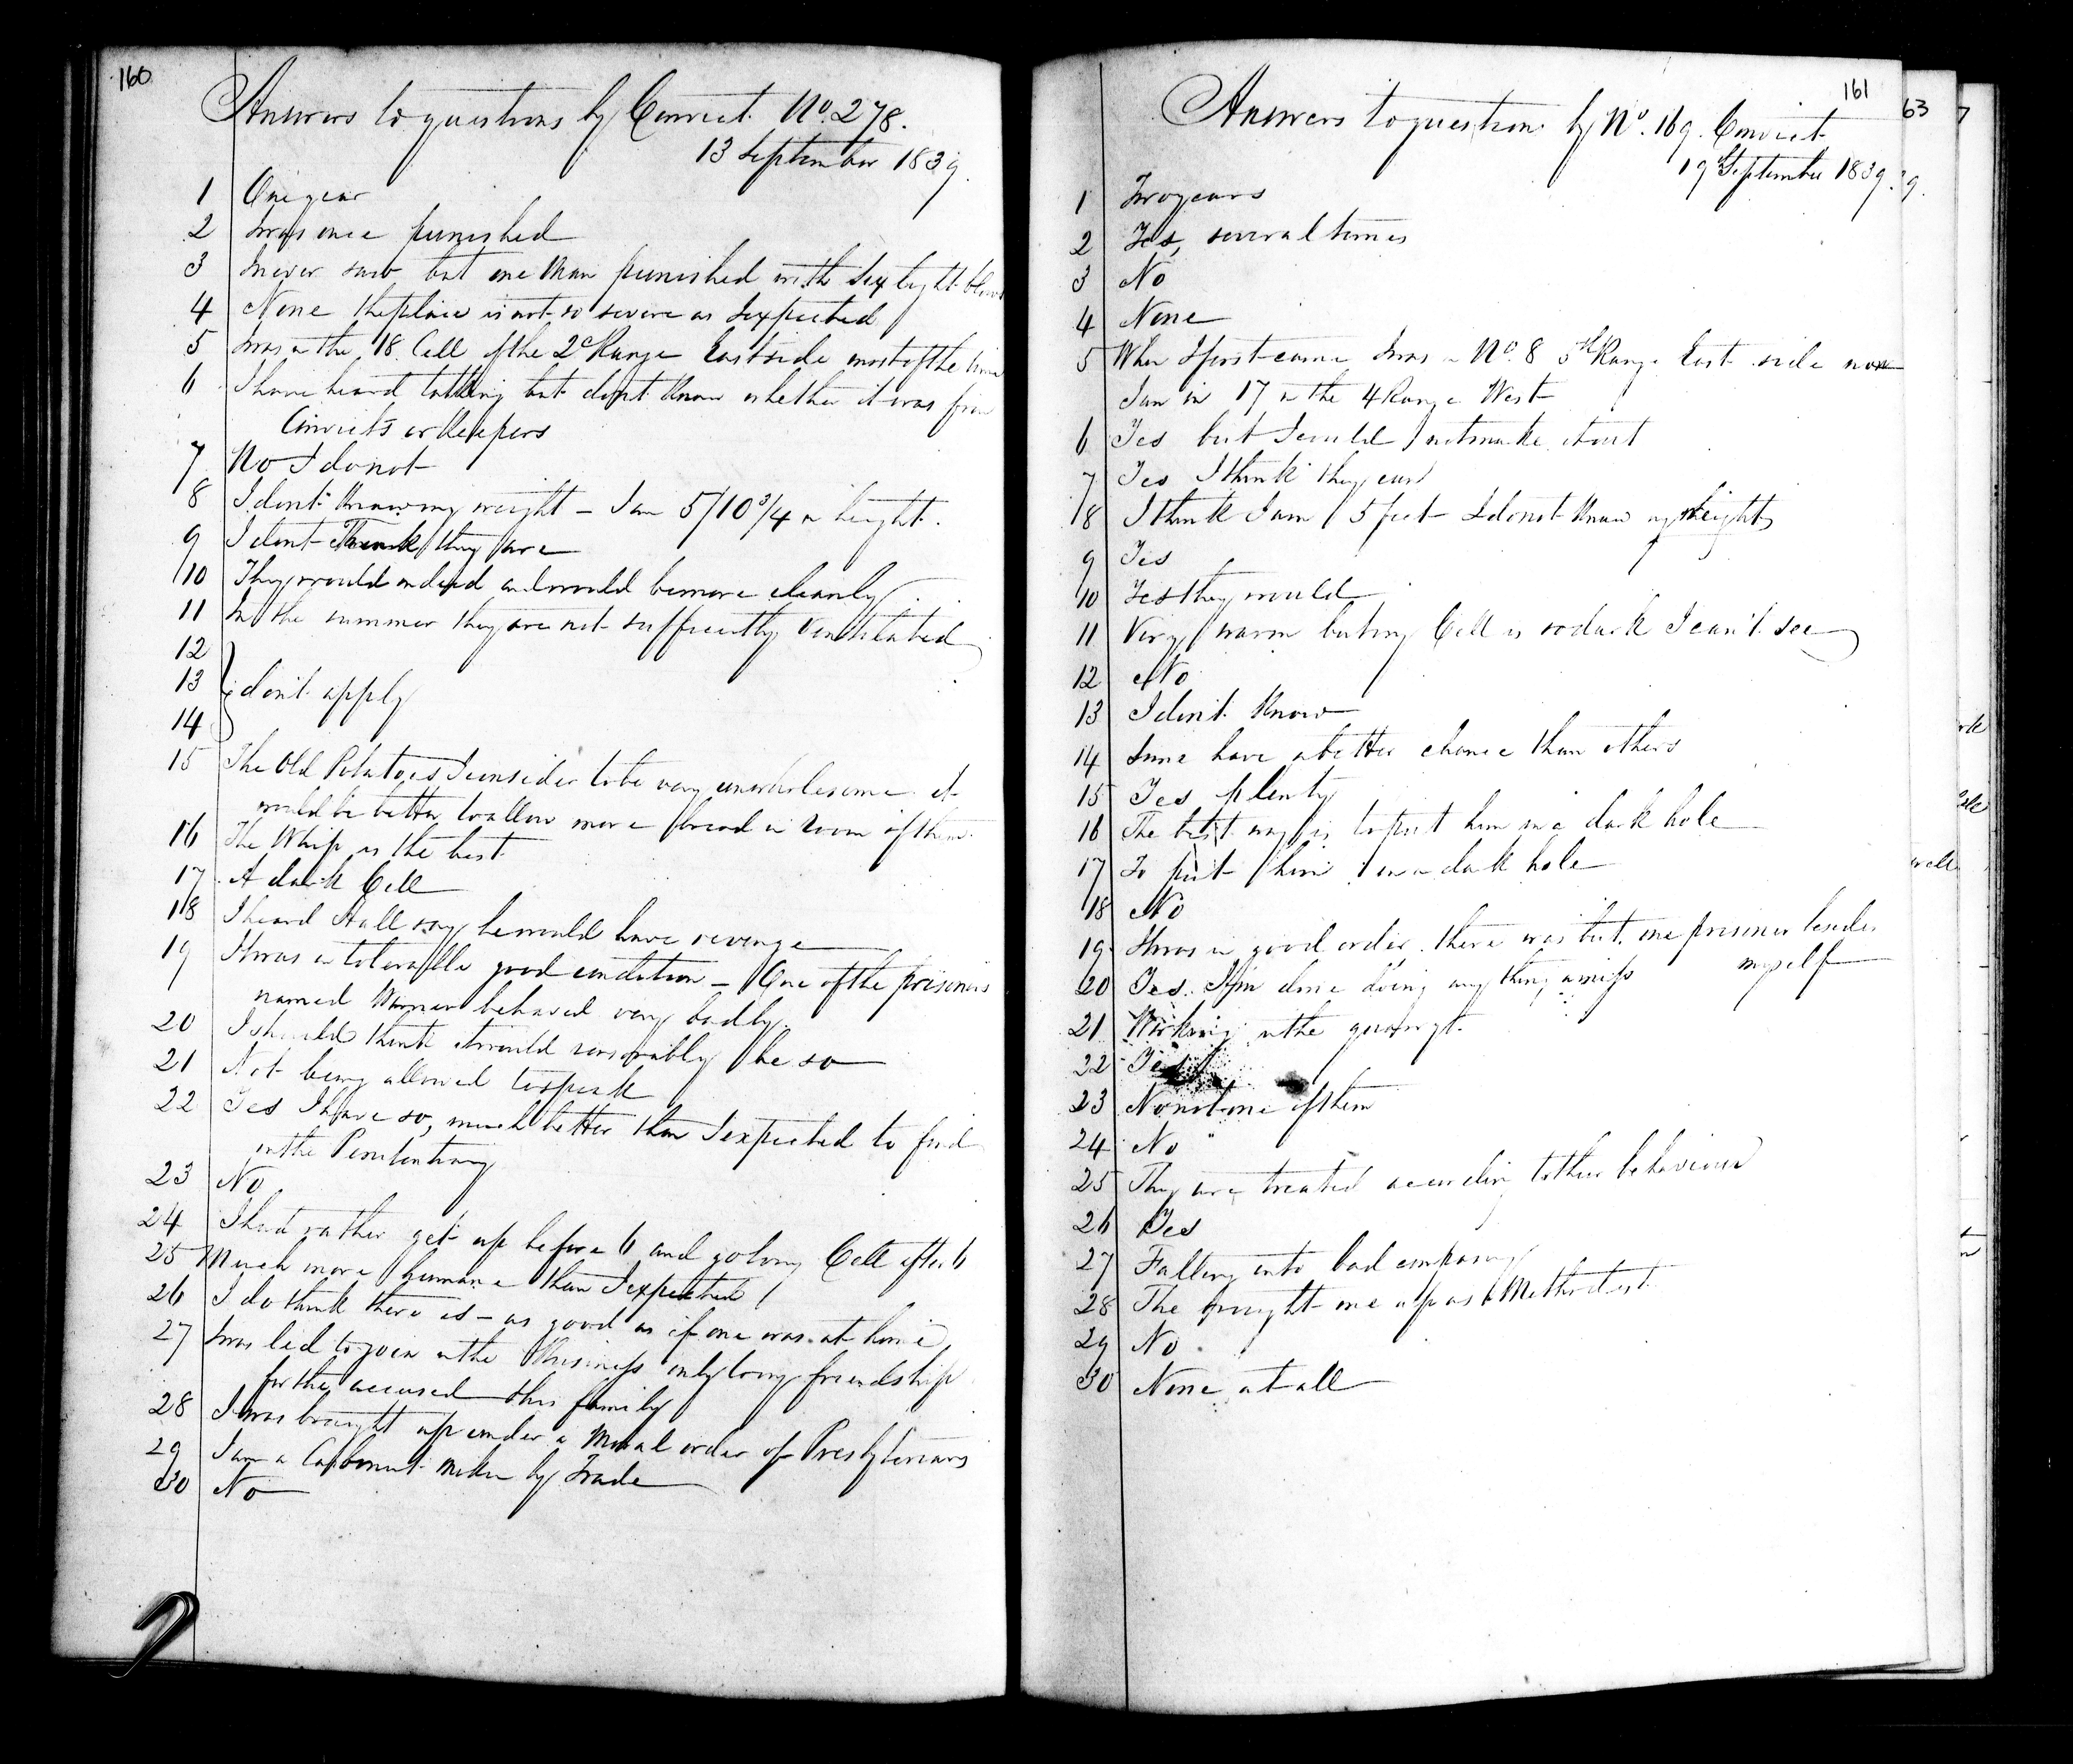 160
Answers to questions by Convict No. 278.
13 September 1839.
1 One year
2 I was once punished
3 I never saw but one Man punished with Six light blows
4 None the place is not so severe as I expected
5 I was in the 18 Cell of the 2d Range East side most of the time
6 I have heard talking but don't Know whether it was from
Convicts or Keepers
7 No I do not
8 I don't Know my weight - I am 5/10 3/4 in height.
9 I dont Think they are
10 They would indeed and would be more cleanly
11 In the summer they are not sufficiently Ventilated
12
13 don't apply
14
15 The Old Potatoes I consider to be very unwholesome it
would be better to allow more bread in room of them
16 The Whip is the best
17 A dark Cell
18 I heard Hall say he would have revenge
19 It was in tolerable good condition - One of the prisoners
named behaved very badly.
20 I should think it would reasonably be so
21 Not being allowed to speak
22 Yes I have so, much better than I expected to find
in the Penitentiary
23 No
24 I had rather get up before 6 and go to my Cell after 6
25 Much more humane than I expected
26 I do think there is - as good as if one was at home
27 I was led to join in the business only by my friendship
for the accused & his family
28 I was brought up under a Moral order of Presbyterians
29 I am a Cabinet Maker by Trade
30 No
161
Answers to questions by No. 169. Convict
19 September 1839.
1 Two years
2 Yes, several times
3 No
4 None
5 When I first came I was in No. 8 5th Range East side now
I am in 17 in the 4 Range West
6 Yes but I could not make it out
7 Yes I think they can
8 I think I am 5 feet I do not Know my weight
9 Yes
10 Yes they would
11 Very warm but my Cell is so dark I can't see
12 No
13 I don't Know
14 Some have a better chance than others
15 Yes plenty
16 The best way is to put him in a dark hole
17 To put him in a dark hole
18 No
19 It was in good order there was but one prisoner besides
myself
20 Yes. I'm done doing any thing amiss
21 Working in the
22 Yes
23 No not one of them
24 No
25 They are treated according to their behaviour
26 Yes
27 Falling into bad company
28 The brought me up as a Methodist
29 No
30 None at all
63
7
9.